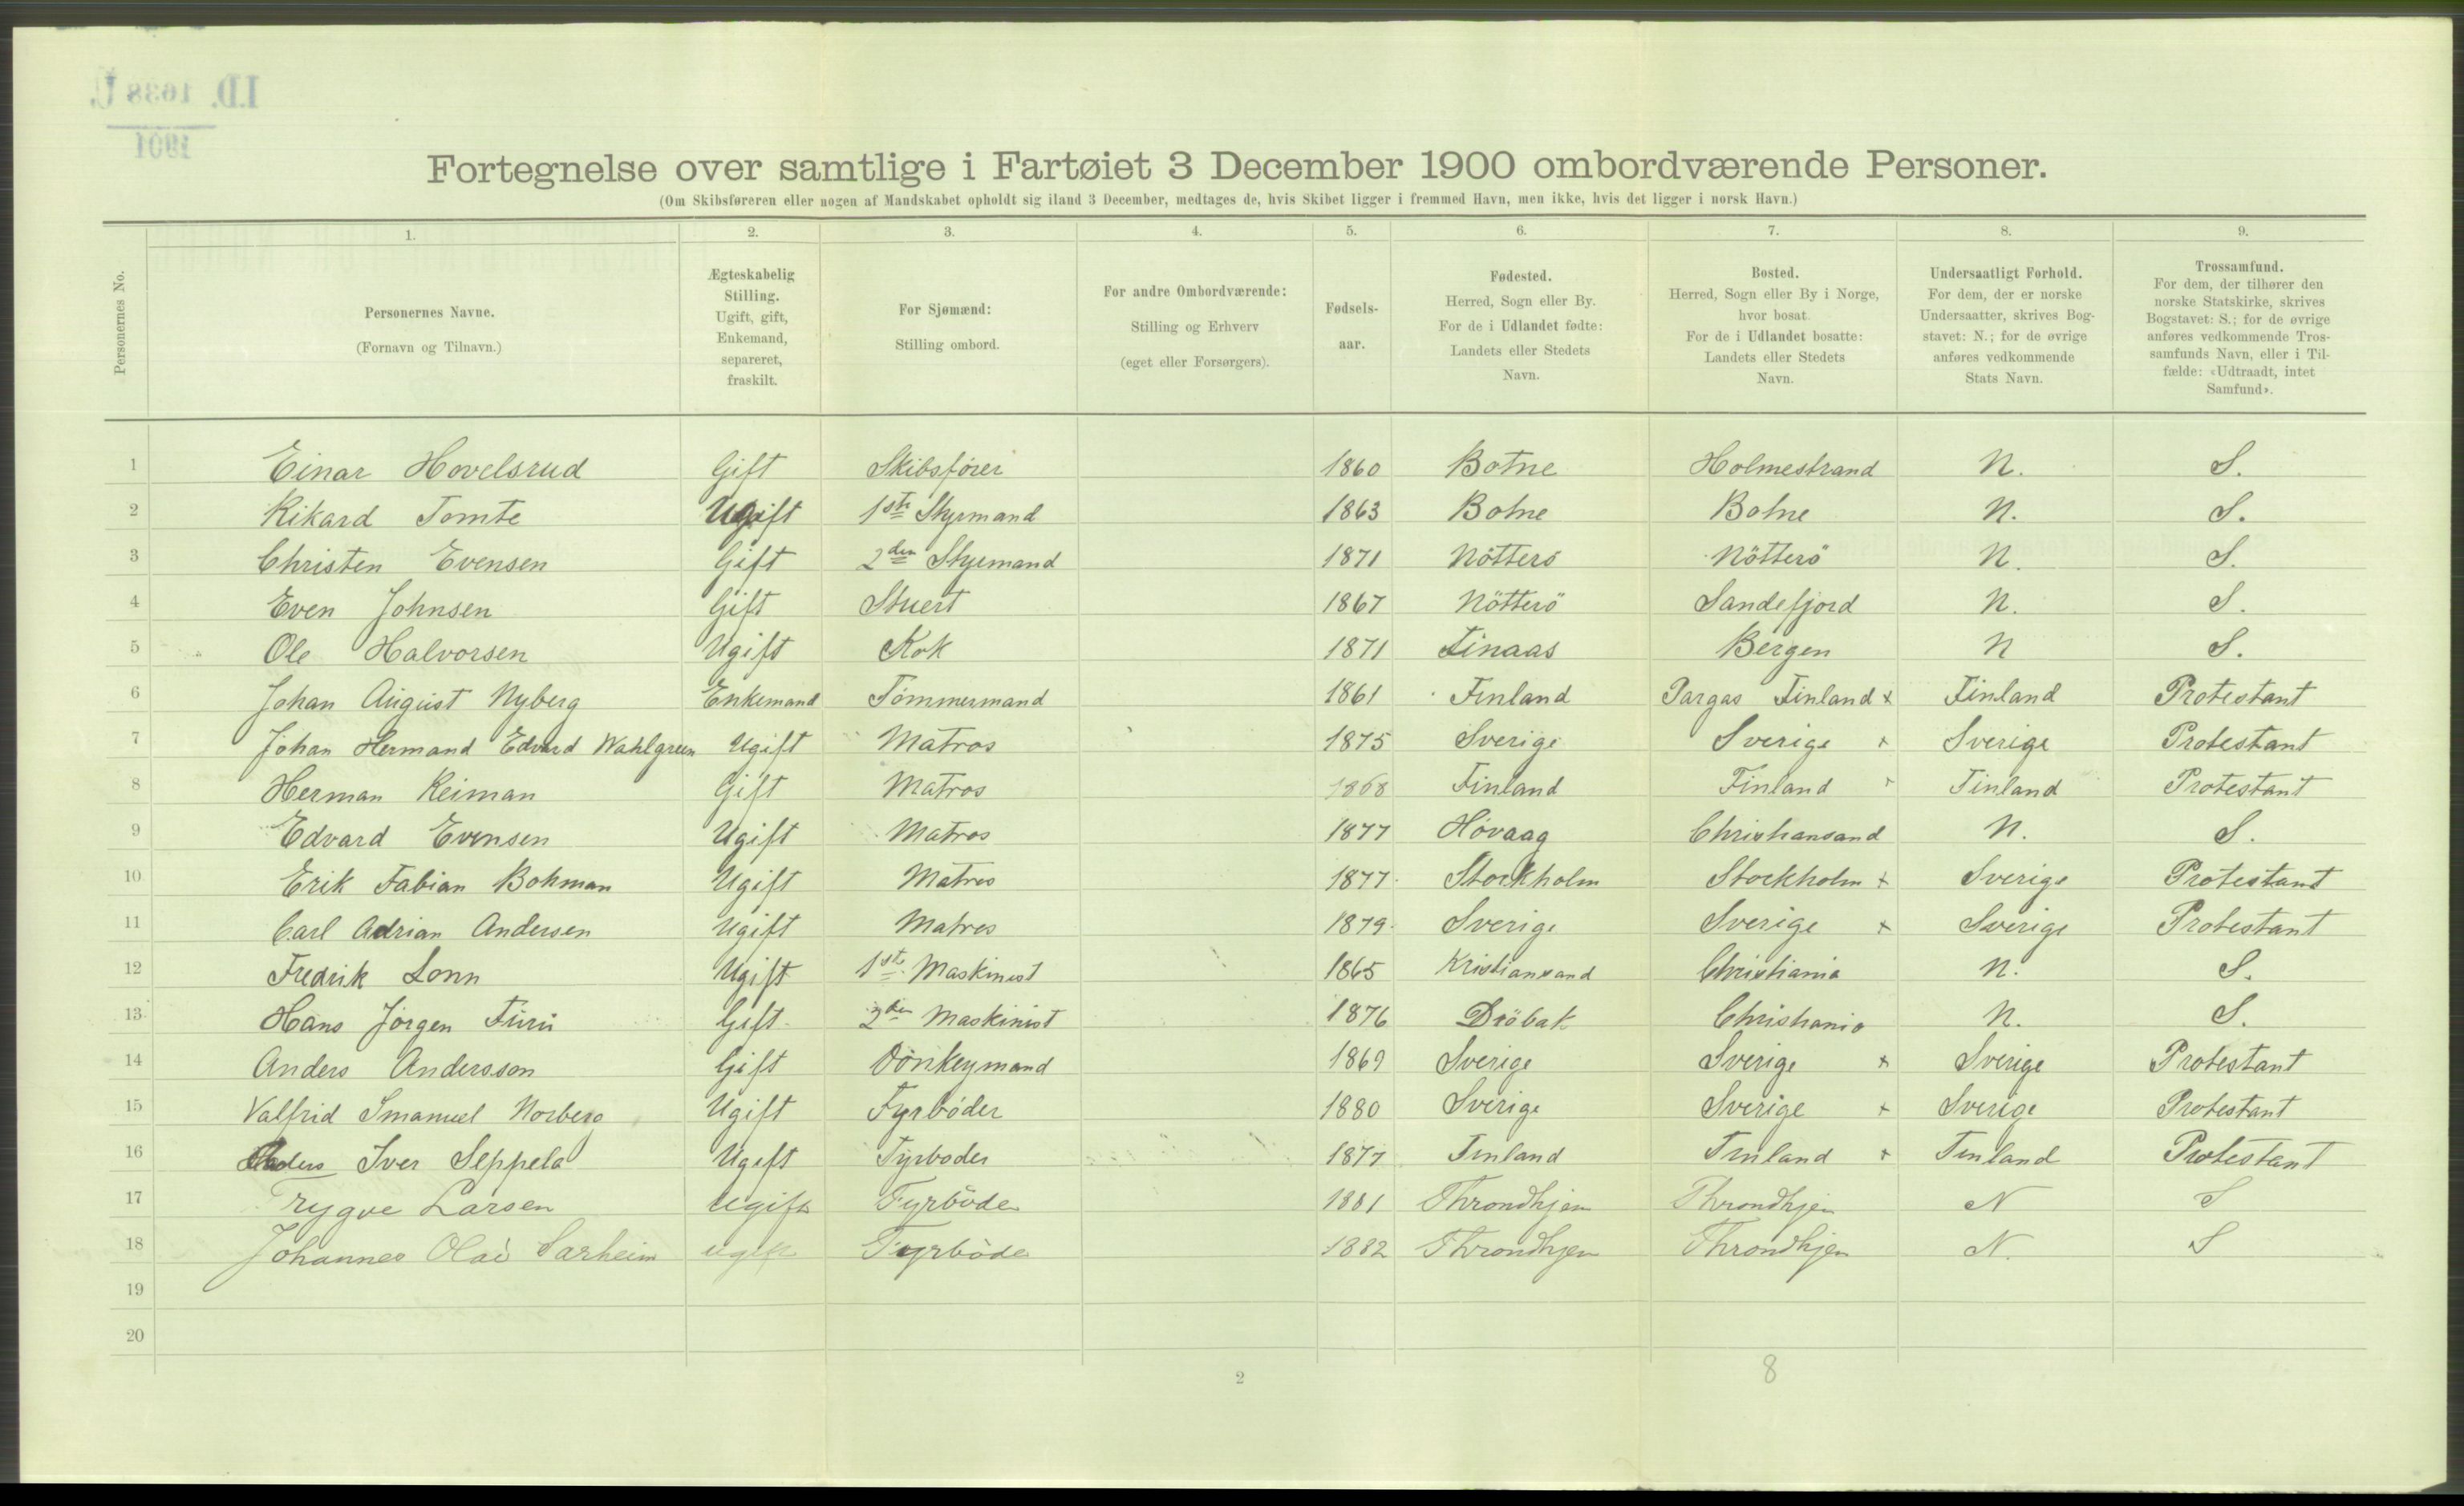 I.D. 1638 U.
1901
Fortegnelse over samtlige i Fartøiet 3 December 1900 ombordværende Personer.
(Om Skibsføreren eller nogen af Mandskabet opholdt sig iland 3 December, medtages de, hvis Skibet ligger i fremmed Havn, men ikke, hvis det ligger i norsk Havn.)
Personernes No.
1. 2. 3. 4. 5. 6. 7. 8. 9.
Personernes Navne.
(Fornavn og Tilnavn.)
Ægteskabelig
Stilling.
Ugift, gift,
Enkemand,
separeret,
fraskilt.
For Sjømænd:
Stilling ombord.
For andre Ombordværende:
Stilling og Erhverv
(eget eller Forsørgers).
Fødsels-
aar.
Fødested.
Herred, Sogn eller By.
For de i Udlandet fødte:
Landets eller Stedets
Navn.
Bosted.
Herred, Sogn eller By i Norge,
hvor bosat.
For de i Udlandet bosatte:
Landets eller Stedets
Navn.
Undersaatligt Forhold.
For dem, der er norske
Undersaatter, skrives Bog-
stavet: N.; for de øvrige
anføres vedkommende
Stats Navn.
Trossamfund.
For dem, der tilhører den
norske Statskirke, skrives
Bogstavet: S.; for de øvrige
anføres vedkommende Tros-
samfunds Navn, eller i Til-
fælde: «Udtraadt, intet
Samfund».
1 Einar Hovelsrud Gift Skibsfører 1860 Botne Holmestrand N. S.
2 Rikard Tomte Ugift 1ste Styrmand 1863 Botne Botne N. S.
3 Christen Evensen Gift 2den Styrmand 1871 Nötterö Nötterö N. S.
4 Even Johnsen Gift Stuert 1867 Nötterö Sandefjord N. S.
5 Ole Halvorsen Ugift Kok 1871 Finaas Bergen N S.
6 Johan August Nyberg Enkemand Tømmermand 1861 Finland Pargas Finland x Finland Protestant
7 Johan Hermand Edvard Wahlgreen Ugift Matros 1875 Sverige Sverige x Sverige Protestant
8 Herman Reiman Gift Matros 1868 Finland Finland x Finland Protestant
9 Edvard Evensen Ugift Matros 1877 Høvaag Christiansand N. S.
10 Erik Fabian Bohman Ugift Matros 1877 Stockholm Stockholm x Sverige Protestant
11 Carl Adrian Andersen Ugift Matros 1879 Sverige Sverige x Sverige Protestant
12 Fredrik Lonn Ugift 1ste Maskinist 1865 Kristiansand Christiania N. S.
13 Hans Jørgen Furu Gift 2den Maskinist 1876 Dröbak Christiania N. S.
14 Anders Andersson Gift Donkeymand 1869 Sverige Sverige x Sverige Protestant
15 Valfrid Imanuel Norberg Ugift Fyrbøder 1880 Sverige Sverige x Sverige Protestant
16 Iver Seppela Ugift Fyrbøder 1877 Finland Finland x Finland Protestant
17 Trygve Larsen Ugift Fyrböde 1881 Throndhjem Throndhjem N S
18 Johannes Olai Sarheim ugift Fyrböde 1882 Throndhjem Throndhjem N. S
19
20
2
8